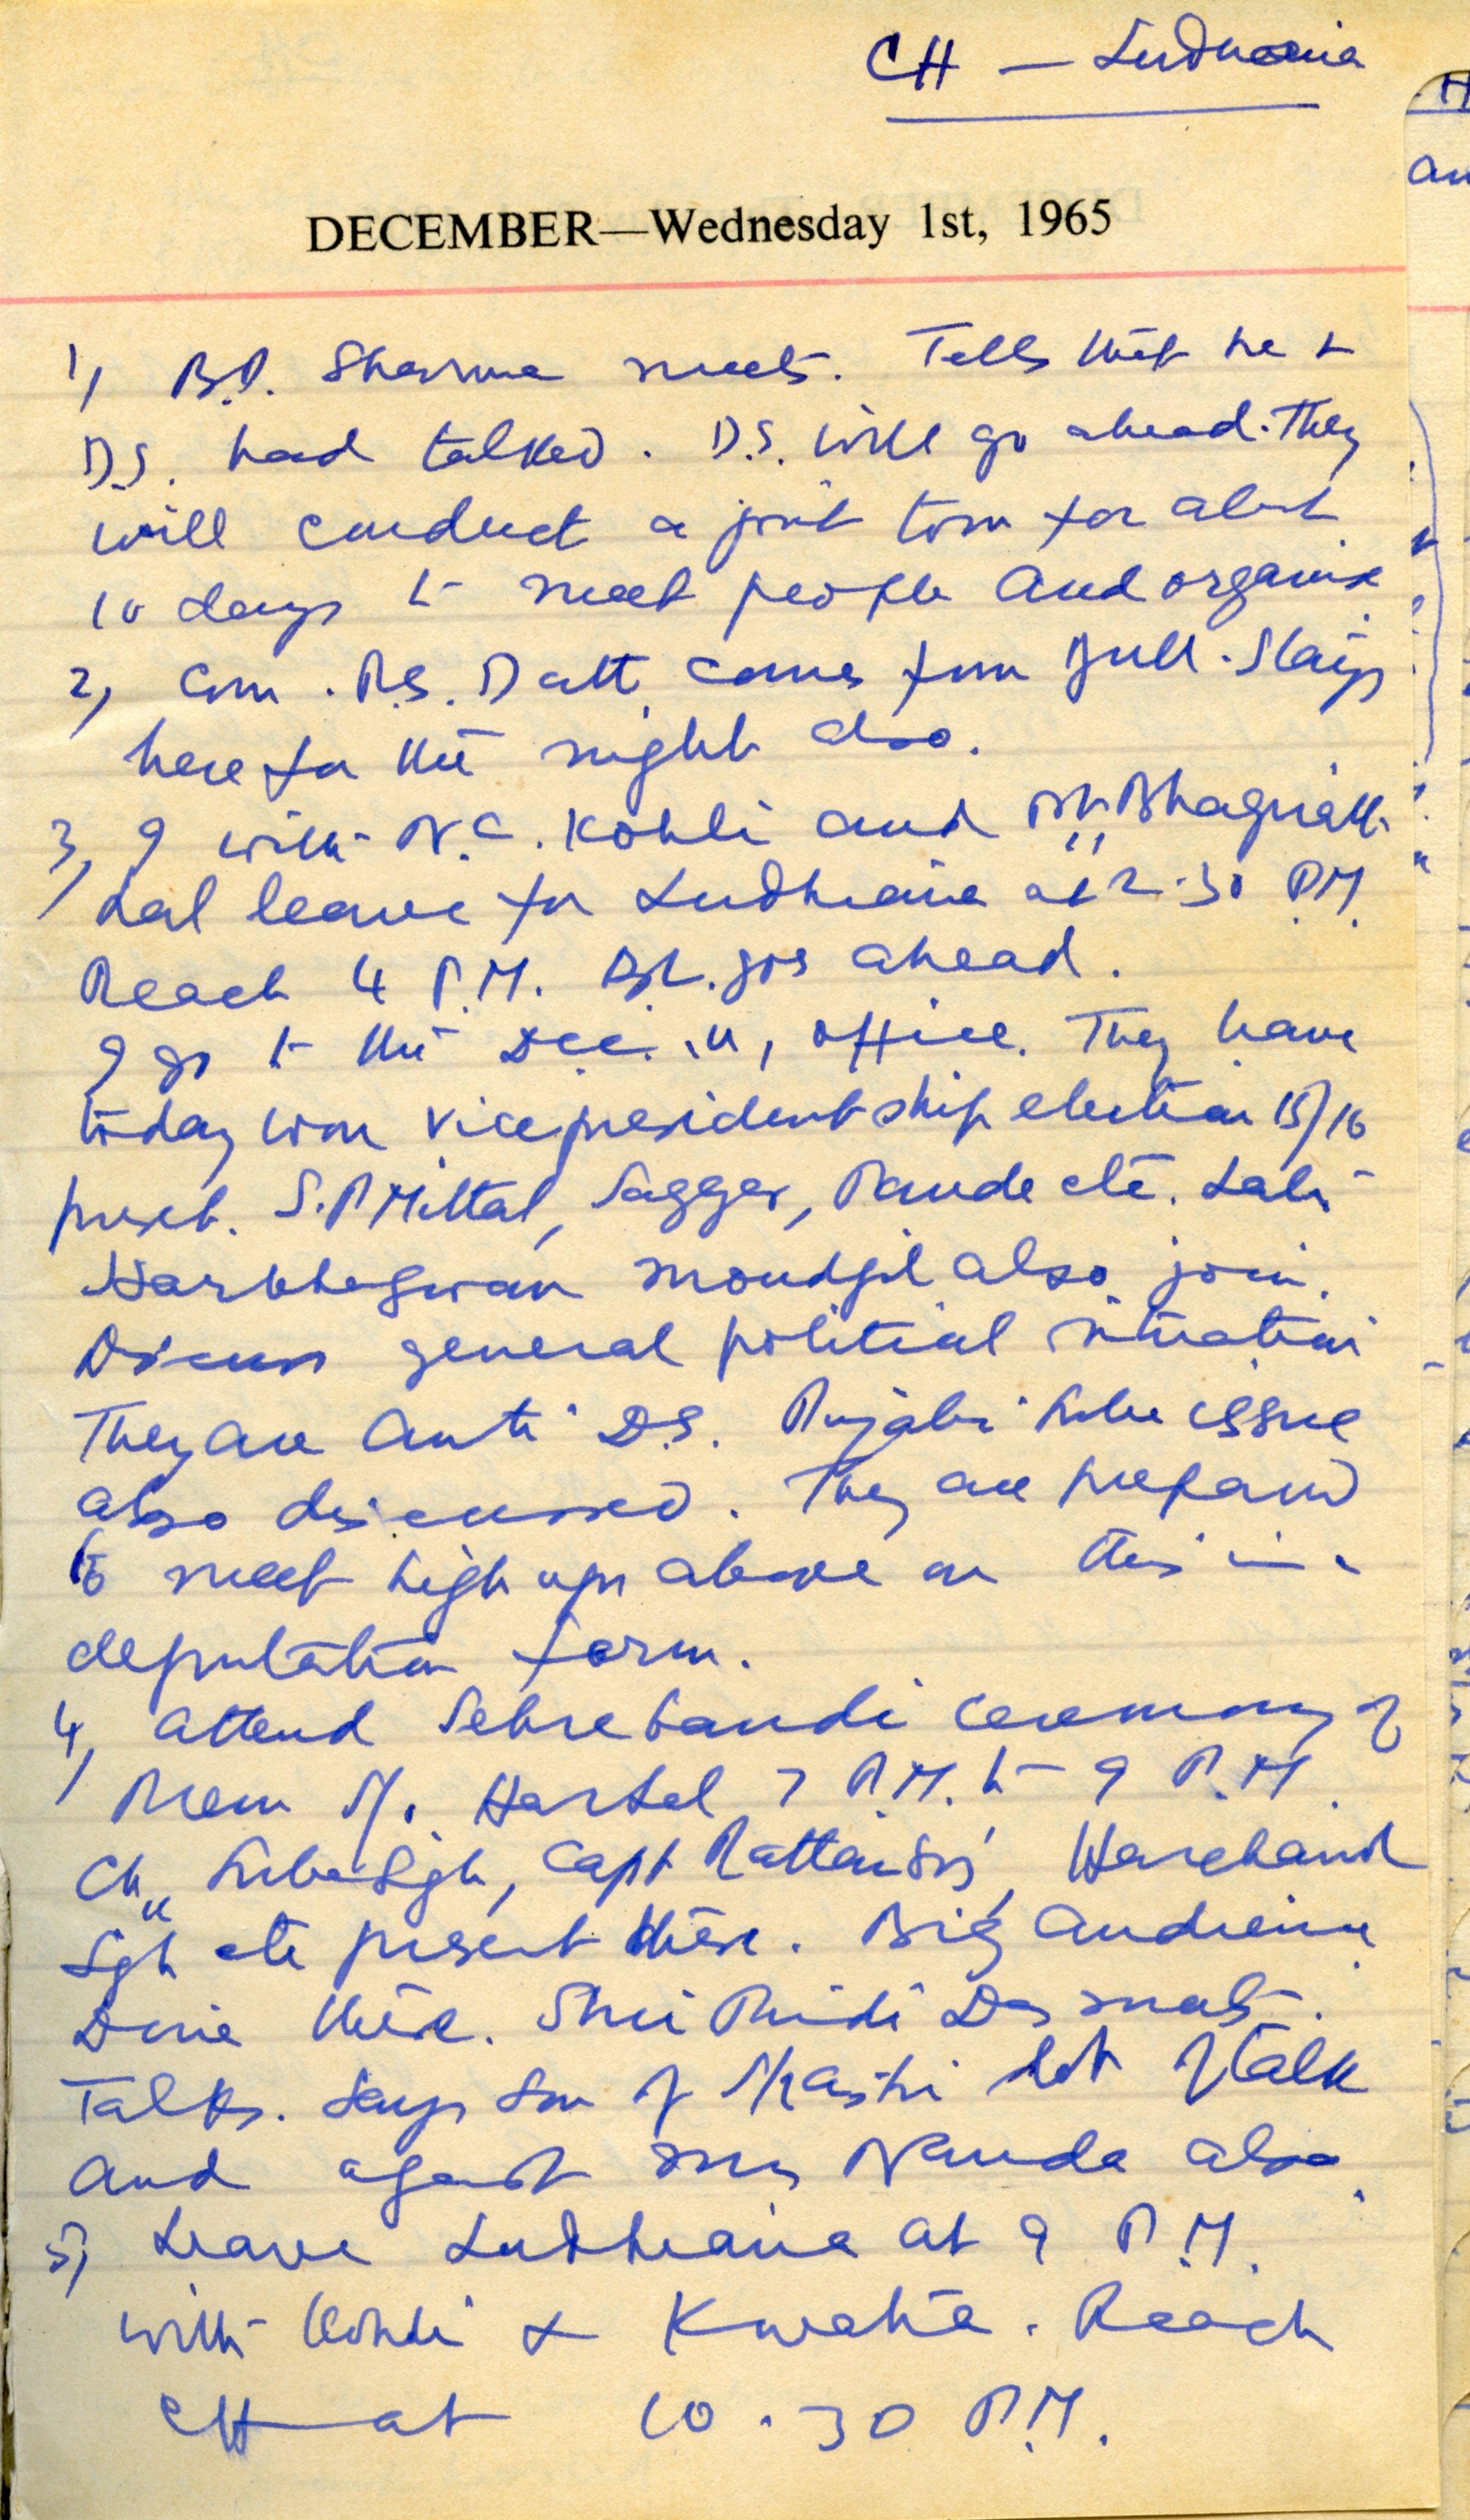 CH — Ludhiana
DECEMBER—Wednesday 1st, 1965
1) B.D. Sharma meets. Tells that he &
D.S. had talked. D.S. will go ahead. They
will conduct a joint tour for about
10 days to meet people and organise
2) Com. R.S. Datt comes from Jull. Stays
here for the night also.
3) I with N.C. Kohli and Bhagirath
Lal leave for Ludhiana at 2.30 P.M.
Reach 4 P.M. B.L. goes ahead.
I go to the office. They have
today won vice presidentship election 15/16
present. S.P Mittal, Saggar, etc.
Harbhagwan Moudgil also join.
Discuss general political situation
They are anti D.S. Punjabi Suba issue
also discussed. They are prepared
to meet high ups above on this in a
deputation form.
4) attend Sehrabandi ceremony of
Prem S/o Harlal 7 P.M. to 9 P.M.
Ch. Suba Sgh, Capt Rattan Sgh, Harchand
Sgh etc present there. Big audience
Dine there. Shri Das meets.
Talks. Says son of Shastri lot of talk
and against Nanda also.
5) Leave Ludhiana at 9 P.M.
with Kohli & Reach
CH at 10.30 P.M.